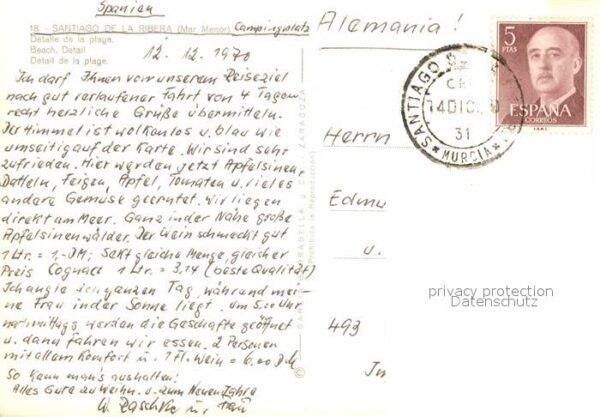 Spanien
18 - SANTIAGO DE LA RIBERA (Mar Menor) Campingplatz
Detalle de la playa.
Beach. Detail
Detail de la plage.
12.12.1970
Ich darf Ihnen von unserem Reiseziel
nach gut verlaufener Fahrt von 4 Tagen
recht herzliche Grüße übermitteln.
Der Himmel ist wolkenlos u. blau wie
umseitig auf der Karte. Wir sind sehr
zufrieden. Hier werden jetzt Apfelsinen,
Datteln, Feigen, Äpfel, Tomaten u. vieles
andere Gemüse geerntet. Wir liegen
direkt am Meer. Ganz in der Nähe große
Apfelsinenwälder. Der Wein schmeckt gut
1 Ltr. = 1,- DM; Sekt gleiche Menge, gleicher
Preis Cognac 1 Ltr. = 3,14 (beste Qualität)
Ich angle den ganzen Tag, während mei
ne Frau in der Sonne liegt. Um 5.00 Uhr
nachmittags werden die Geschäfte geöffnet
u. dann fahren wir essen. 2 Personen
mit allem Komfort u. 1 Fl. Wein = 6.00 DM
So kann man's aushalten!
Alles Gute zu Weihn. u. zum Neuen Jahre
u. Frau
ZARAGOZA
(Prohibida la Reproducción)
Alemania!
5
PTAS
ESPAÑA
CORREOS
SANTIAGO
14 DIC
31
MURCIA
Herrn
Edmu
u.
493
privacy protection
Datenschutz